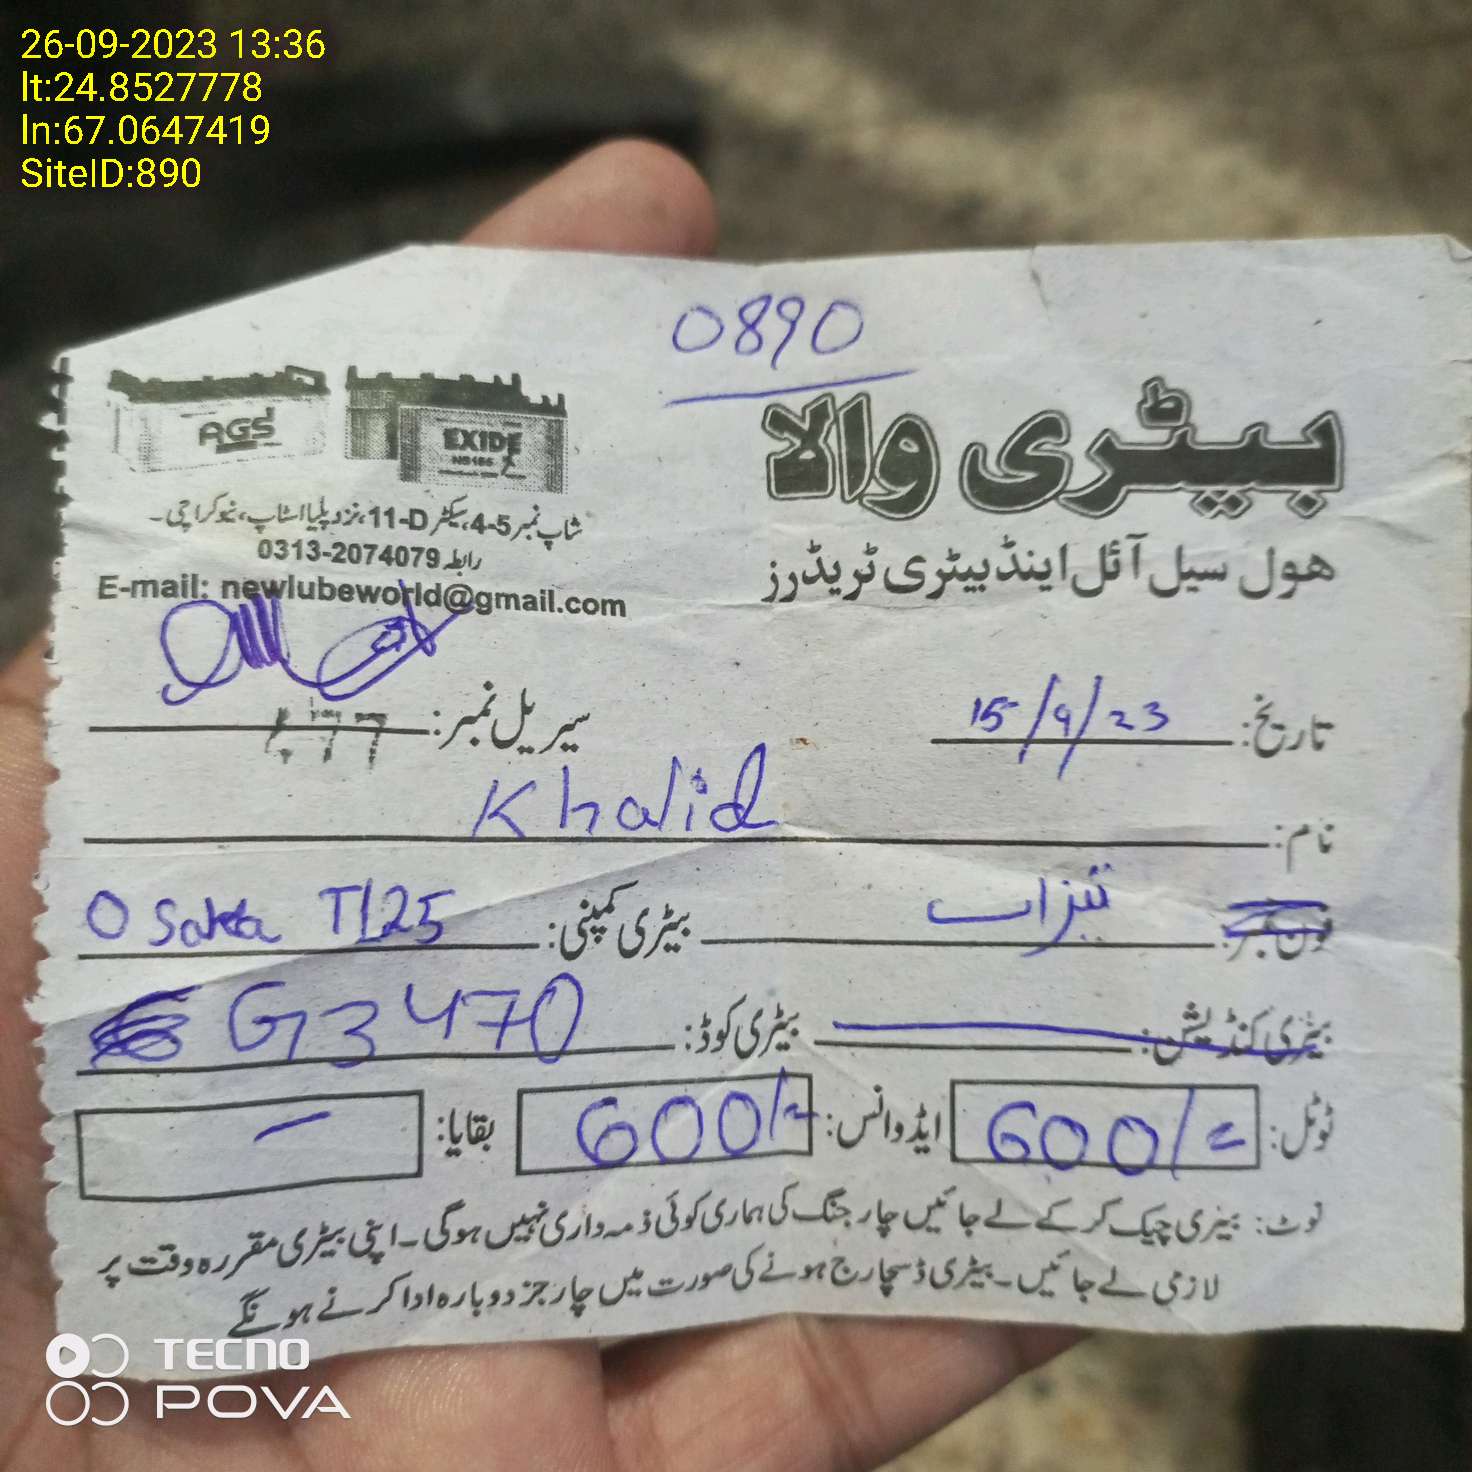 26-09-2023 13:36
lt:24.8527778
ln:67.0647419
SiteID:890
0890
بیٹری والا
ہول سیل آئل اینڈ بیٹری ٹریڈرز
AGS
EXIDE
شاپ نمبر 5-4، سیکٹر 11-D، نزد پلیا اسٹاپ، نیو کراچی۔
رابطہ 0313-2074079
E-mail: newlubeworld@gmail.com
تاریخ: 15/9/23 سیریل نمبر:
نام: Khalid
فون نمبر: تیزاب بیٹری کمپنی: Osaka T125
بیٹری کنڈیشن: بیٹری کوڈ: G3470
ٹوٹل: 600/= ایڈوانس: 600/= بقایا: –
نوٹ: بیٹری چیک کر کے لے جائیں چارجنگ کی ہماری کوئی ذمہ داری نہیں ہوگی۔ اپنی بیٹری مقررہ وقت پر
لازمی لے جائیں۔ بیٹری ڈسچارج ہونے کی صورت میں چارجز دوبارہ ادا کرنے ہونگے
TECNO
POVA